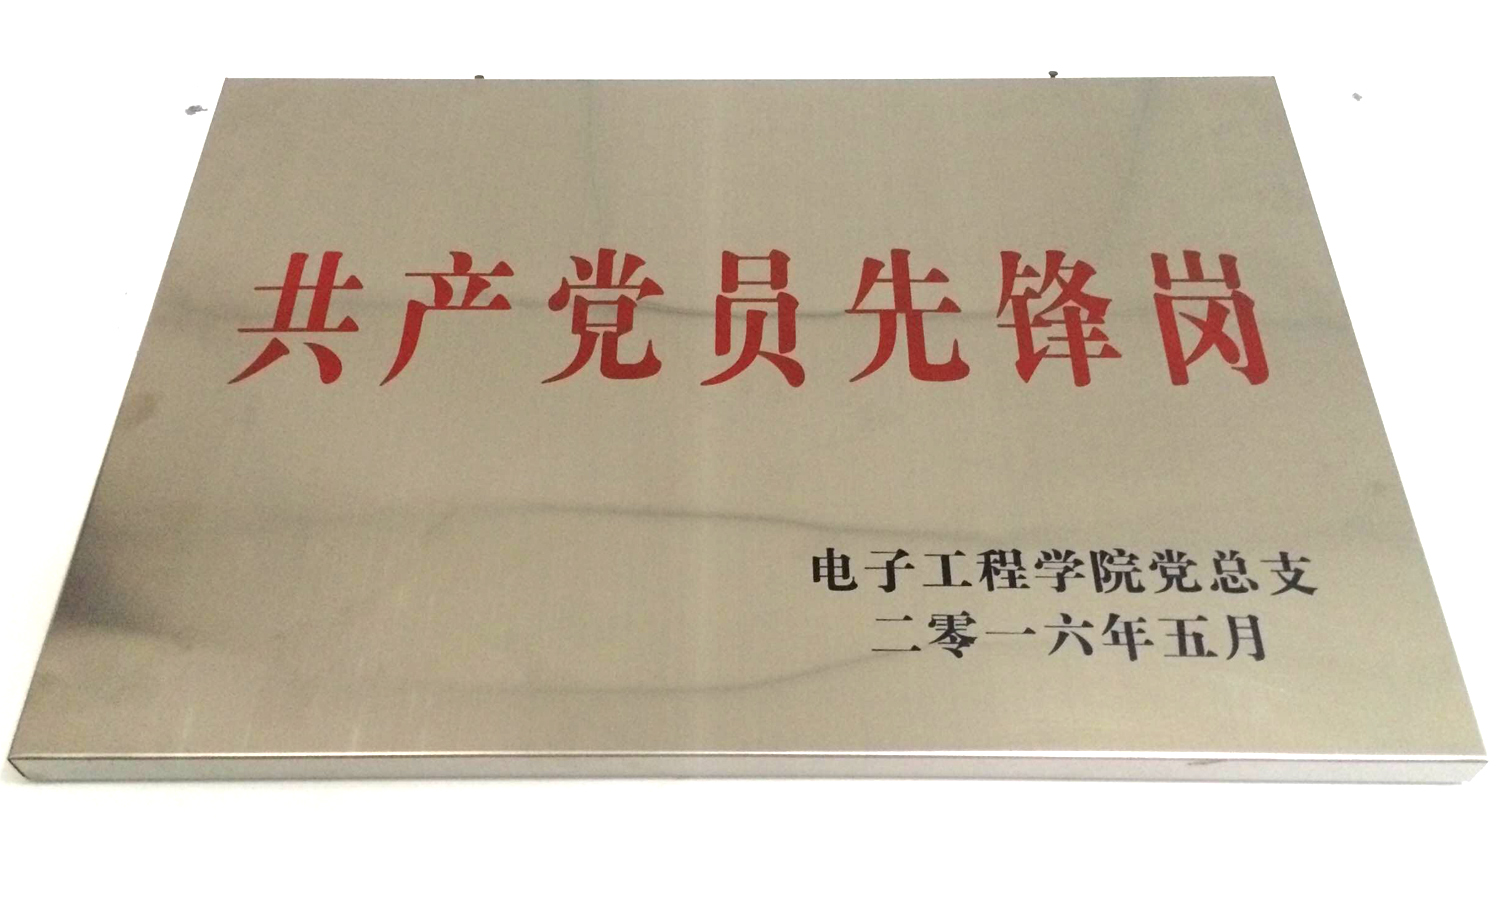 共产党员先锋岗
电子工程学院党总支
二零一六年五月